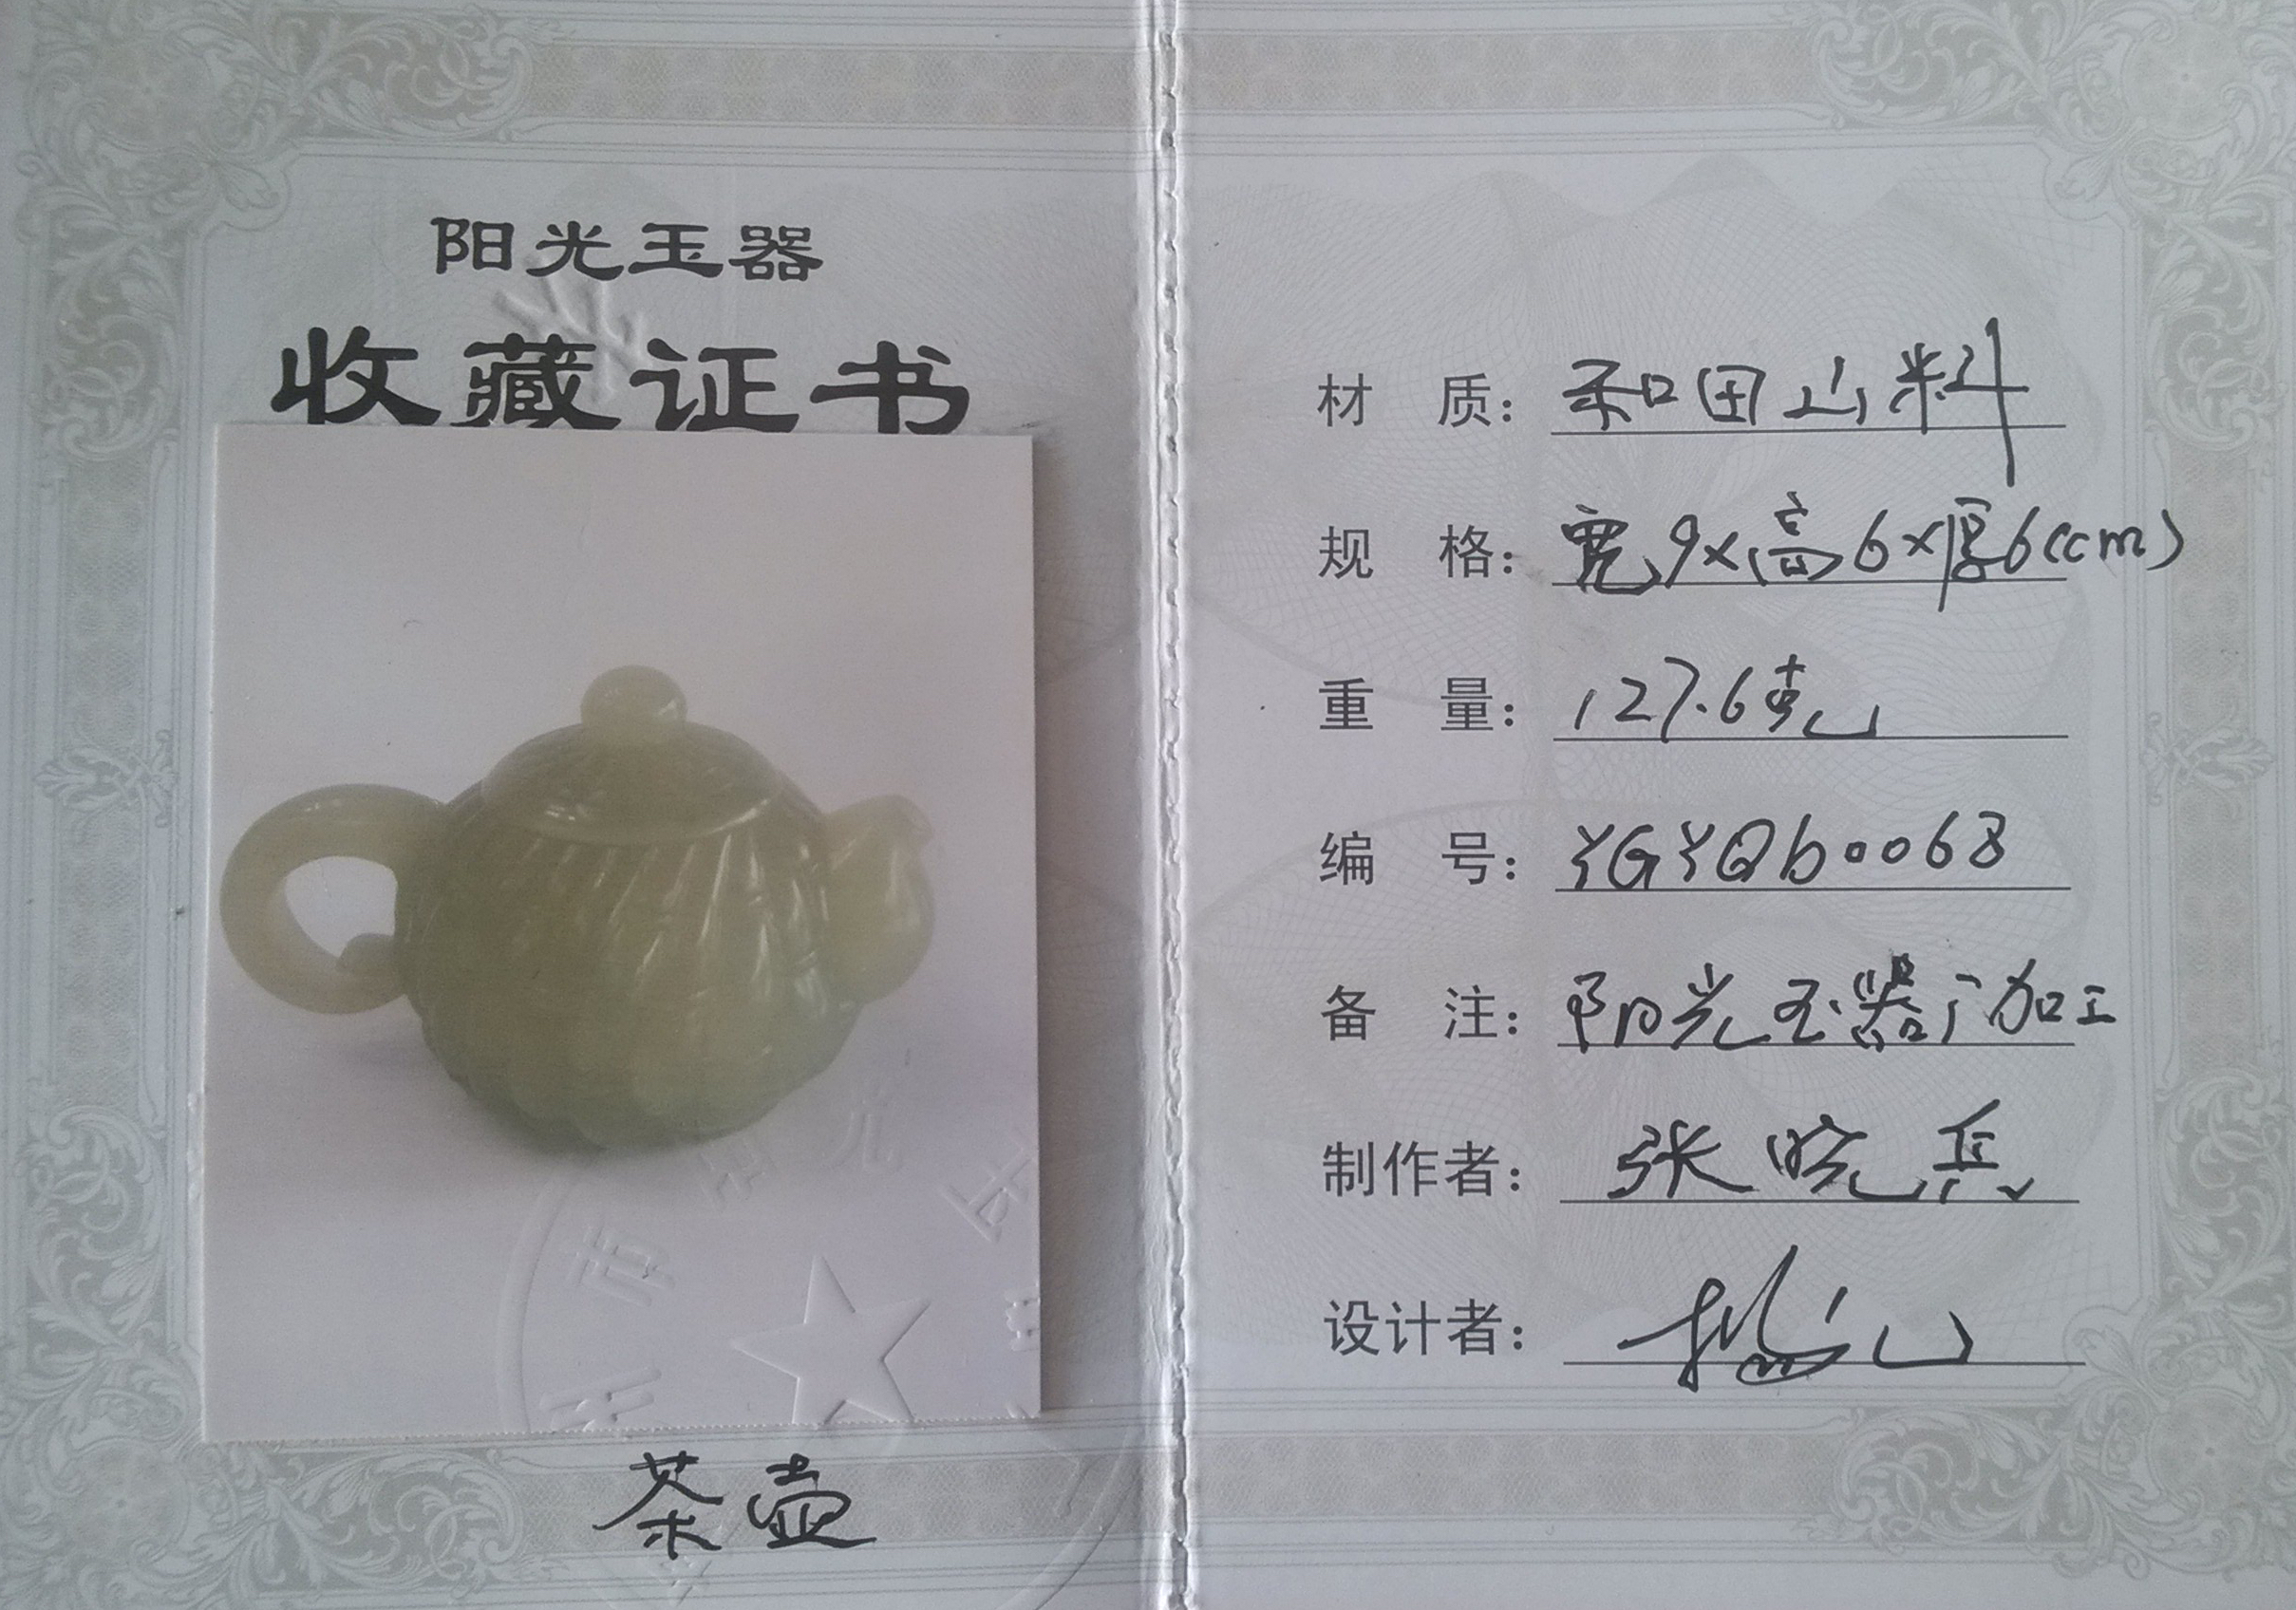 阳光玉器
收藏证书
茶壶
材 质：和田山料
规 格：宽9×高6×厚6(cm)
重 量：127.6克
编 号：YGYQb0068
备 注：阳光玉器厂加工
制作者：张晓兵
设计者：